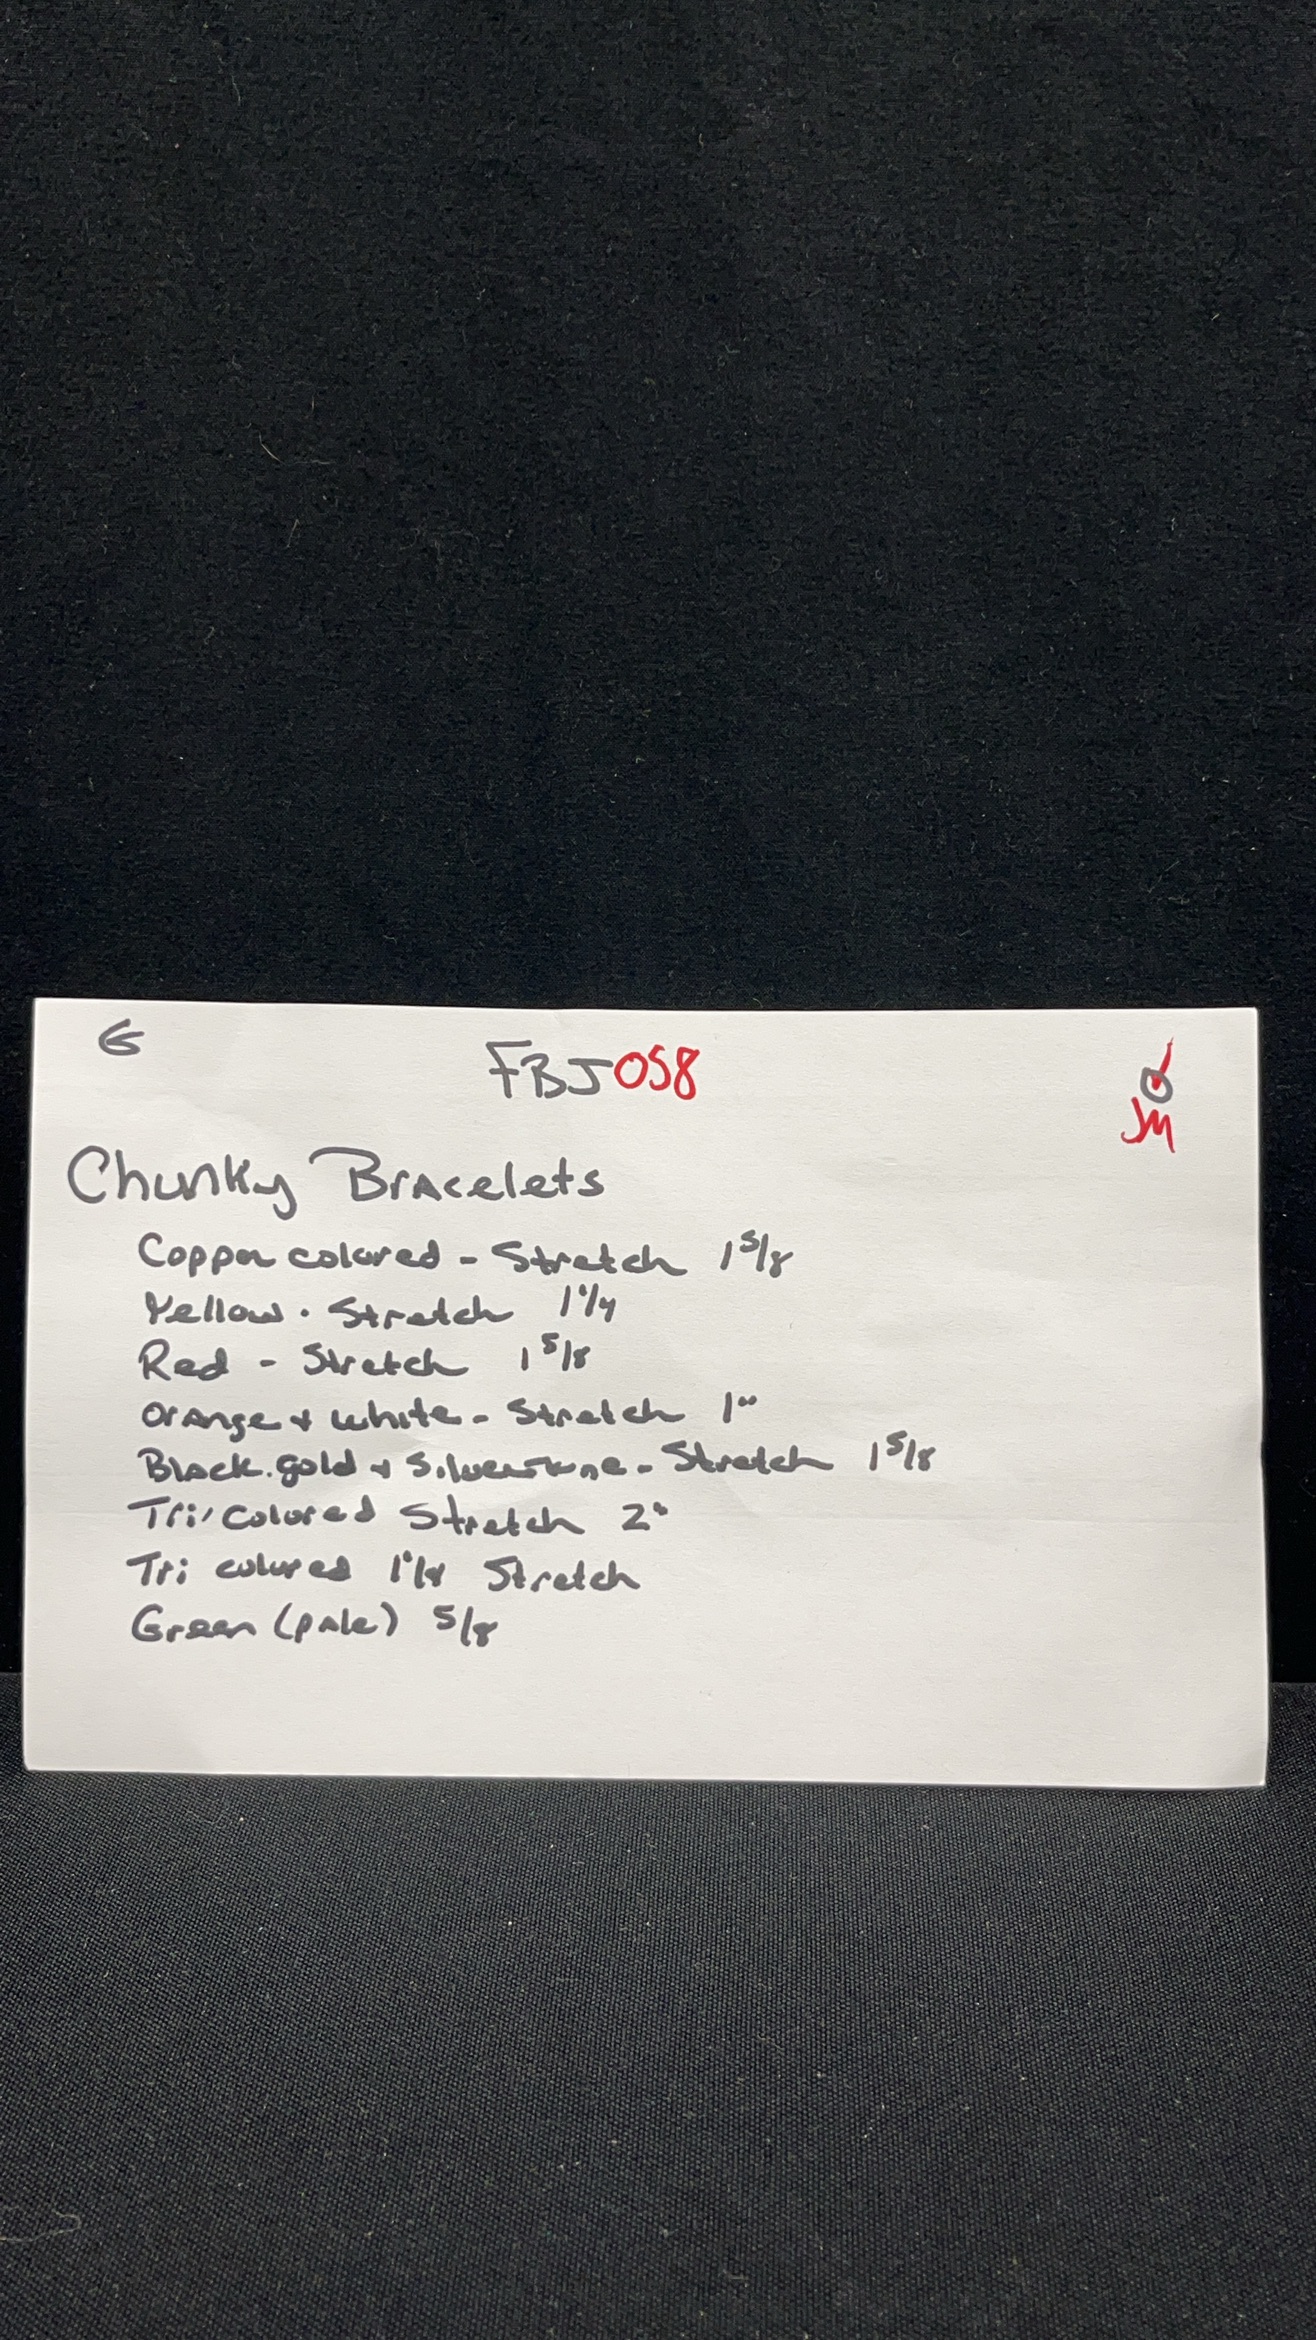 G
FBJ058
JM
Chunky Bracelets
Copper colored - Stretch 1 5/8
Yellow - Stretch 1 1/4
Red - Stretch 1 5/8
Orange + white - Stretch 1"
Black. gold + Silvertone - Stretch 1 5/8
Tri/Colored Stretch 2"
Tri colored Stretch
Green (pale) 5/8